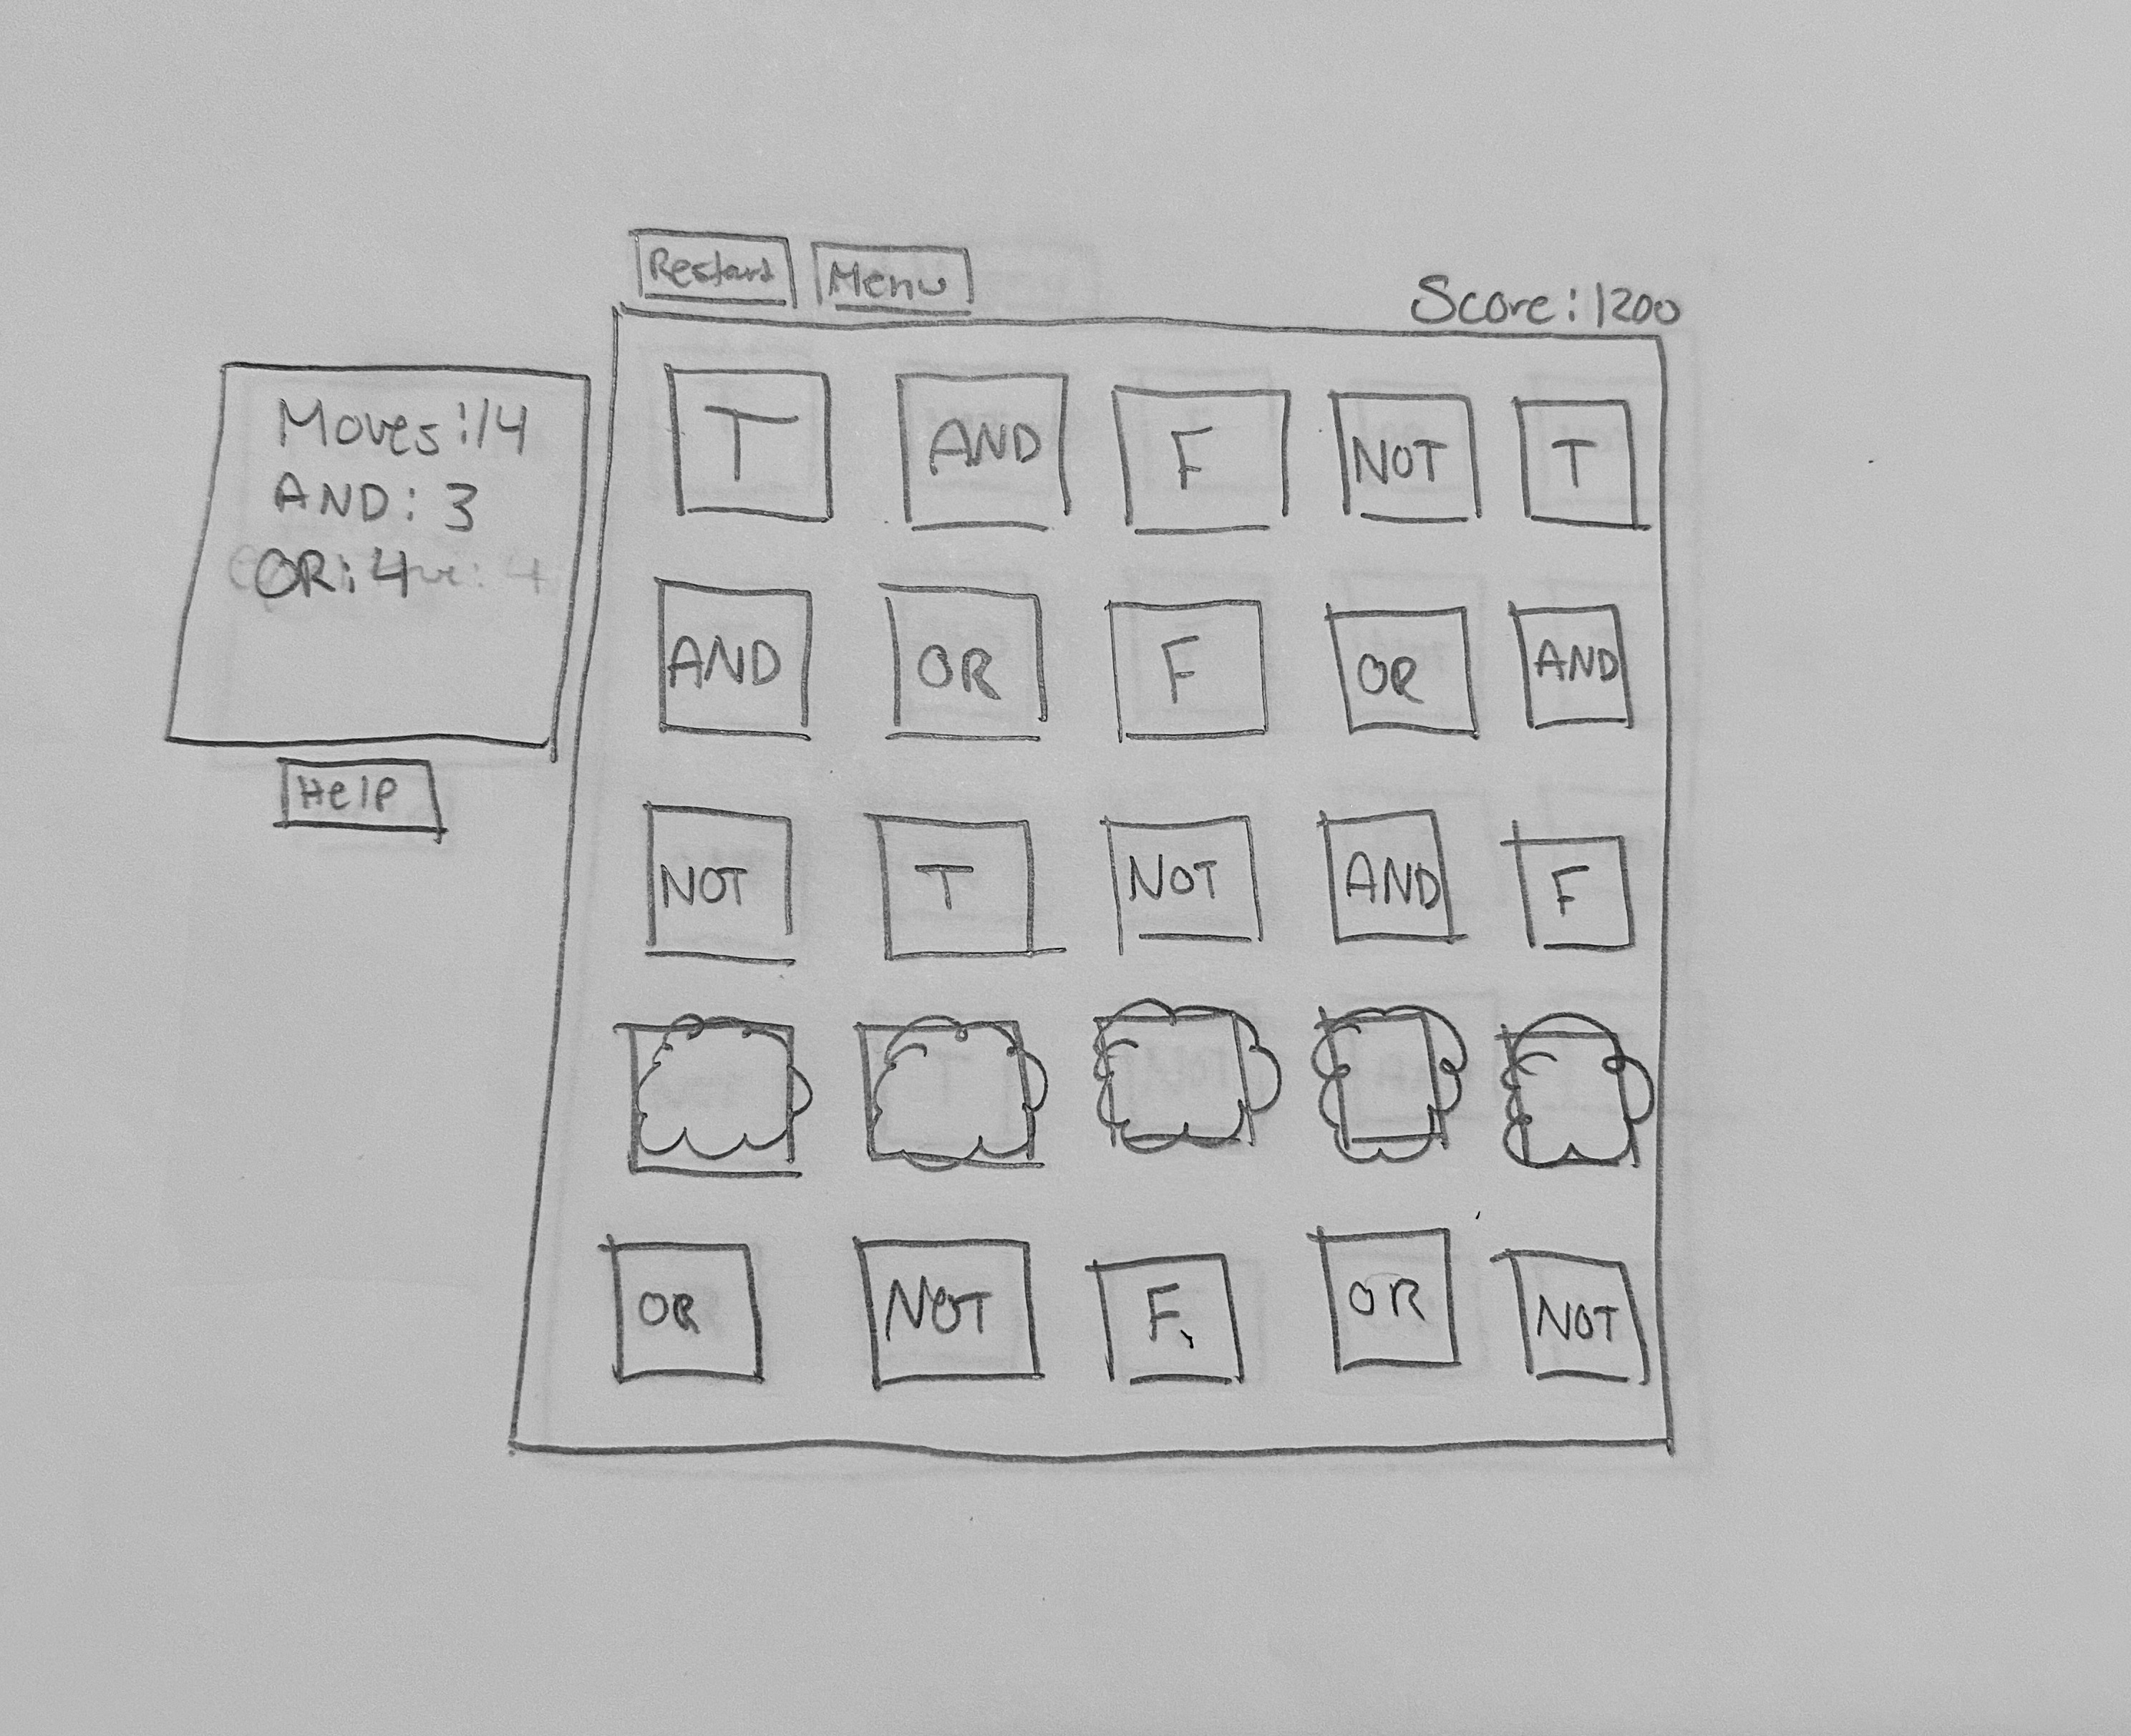 Restart Menu
Score: 1200
Moves: 14
AND: 3
OR: 4
Help
T AND F NOT T
AND OR F OR AND
NOT T NOT AND F
OR NOT F OR NOT